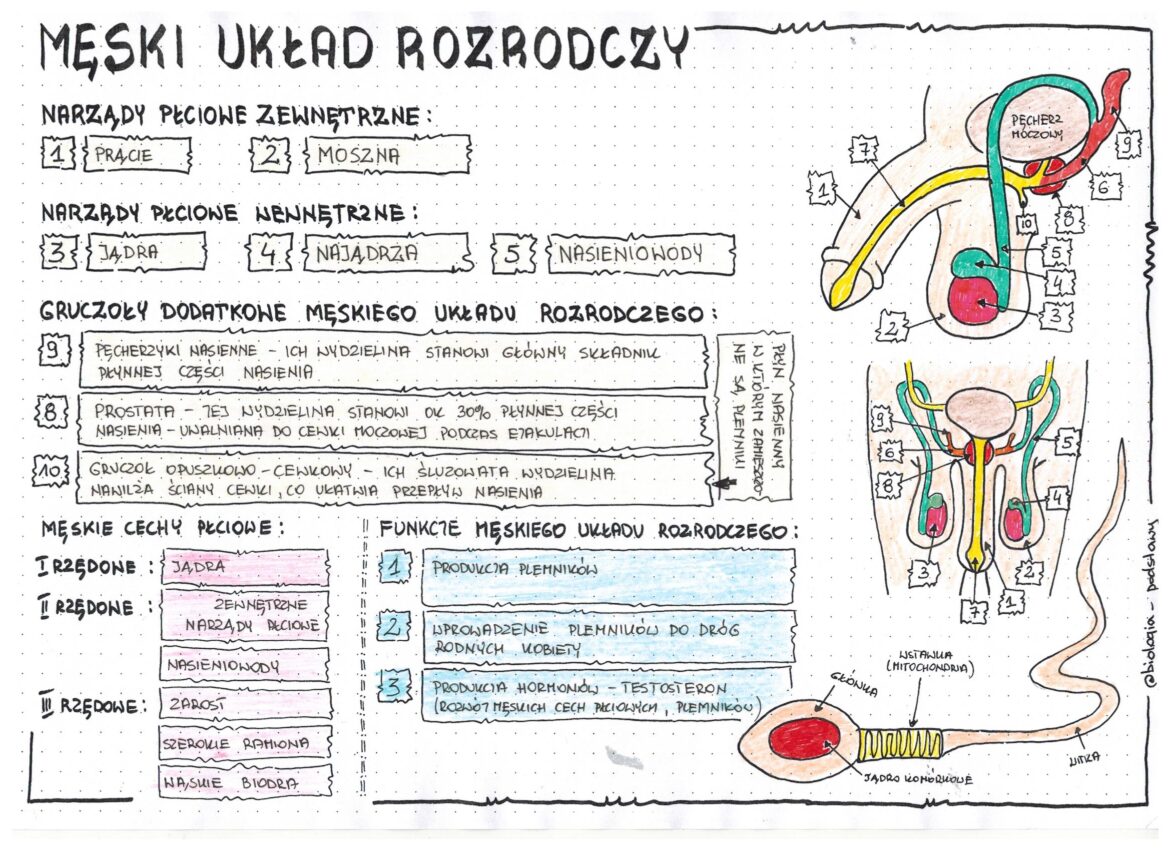 MĘSKI UKŁAD ROZRODCZY
NARZĄDY PŁCIOWE ZEWNĘTRZNE:
1 PRĄCIE 2 MOSZNA
NARZĄDY PŁCIOWE WEWNĘTRZNE:
3 JĄDRA 4 NAJĄDRZA 5 NASIENIOWODY
GRUCZOŁY DODATKOWE MĘSKIEGO UKŁADU ROZRODCZEGO:
9 PĘCHERZYKI NASIENNE – ICH WYDZIELINA STANOWI GŁÓWNY SKŁADNIK
PŁYNNEJ CZĘŚCI NASIENIA
8 PROSTATA – JEJ WYDZIELINA STANOWI OK 30% PŁYNNEJ CZĘŚCI
NASIENIA – UWALNIANA DO CEWKI MOCZOWEJ PODCZAS EJAKULACJI
10 GRUCZOŁ OPUSZKOWO – CEWKOWY – ICH ŚLUZOWATA WYDZIELINA
NAWILŻA ŚCIANY CEWKI, CO UŁATWIA PRZEPŁYW NASIENIA
PŁYN NASIENNYM
W KTÓRYM ZAMIESZCZO-
NE SĄ PLEMNIKI
MĘSKIE CECHY PŁCIOWE:
I RZĘDOWE: JĄDRA
II RZĘDOWE: ZEWNĘTRZNE
NARZĄDY PŁCIOWE
NASIENIOWODY
III RZĘDOWE: ZAROST
SZEROKIE RAMIONA
WĄSKIE BIODRA
FUNKCJE MĘSKIEGO UKŁADU ROZRODCZEGO:
1 PRODUKCJA PLEMNIKÓW
2 WPROWADZENIE PLEMNIKÓW DO DRÓG
RODNYCH KOBIETY
3 PRODUKCJA HORMONÓW – TESTOSTERON
(ROZWÓJ MĘSKICH CECH PŁCIOWYCH, PLEMNIKÓW)
PĘCHERZ
MOCZOWY
7
1
9
6
8
10
5
4
3
2
9
6
8
5
4
3
7
1
2
WSTAWKA
(MITOCHONDRIA)
GŁÓWKA
JĄDRO KOMÓRKOWE
WITKA
@biologia – podstawy